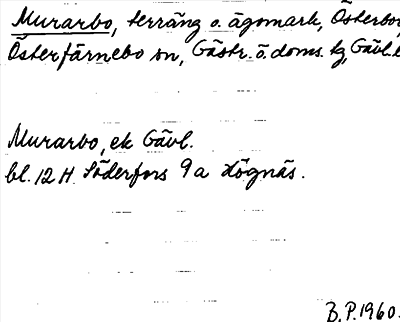 Murarbo, terräng o. ägomark, Österbo,
Österfärnebo sn, Gästr. ö. doms. tg, Gävl. l
Murarbo, ek Gävl.
bl. 12 H Söderfors 9 a Högnäs.
B.P. 1960.